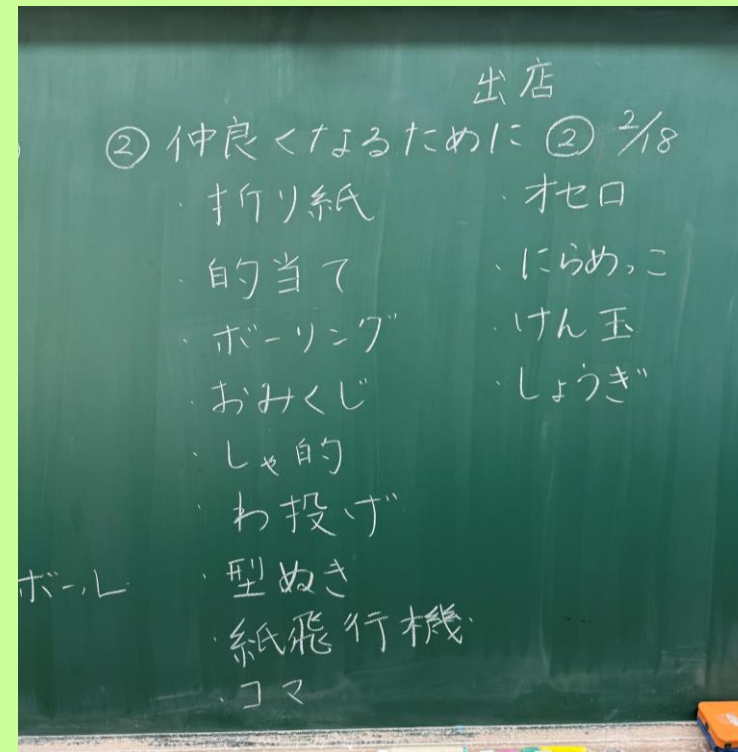 出店
② 仲良くなるために ② 2/18
・折り紙
・的当て
・ボーリング
・おみくじ
・しゃ的
・わ投げ
・型ぬき
・紙飛行機
・コマ
・オセロ
・にらめっこ
・けん玉
・しょうぎ
ボール